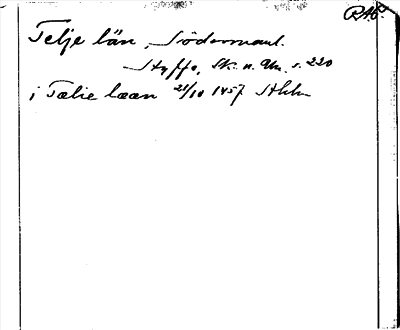 RAp.
Telje län, Södermanl.
Styffe, Sk. u. Un. s. 220
i Tælie læan 21/10 1457 Sthlm